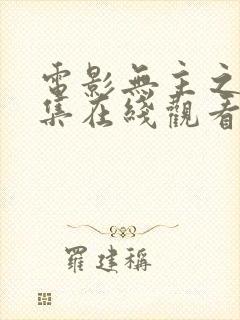 電影無主之
集在綫觀看
羅建稱